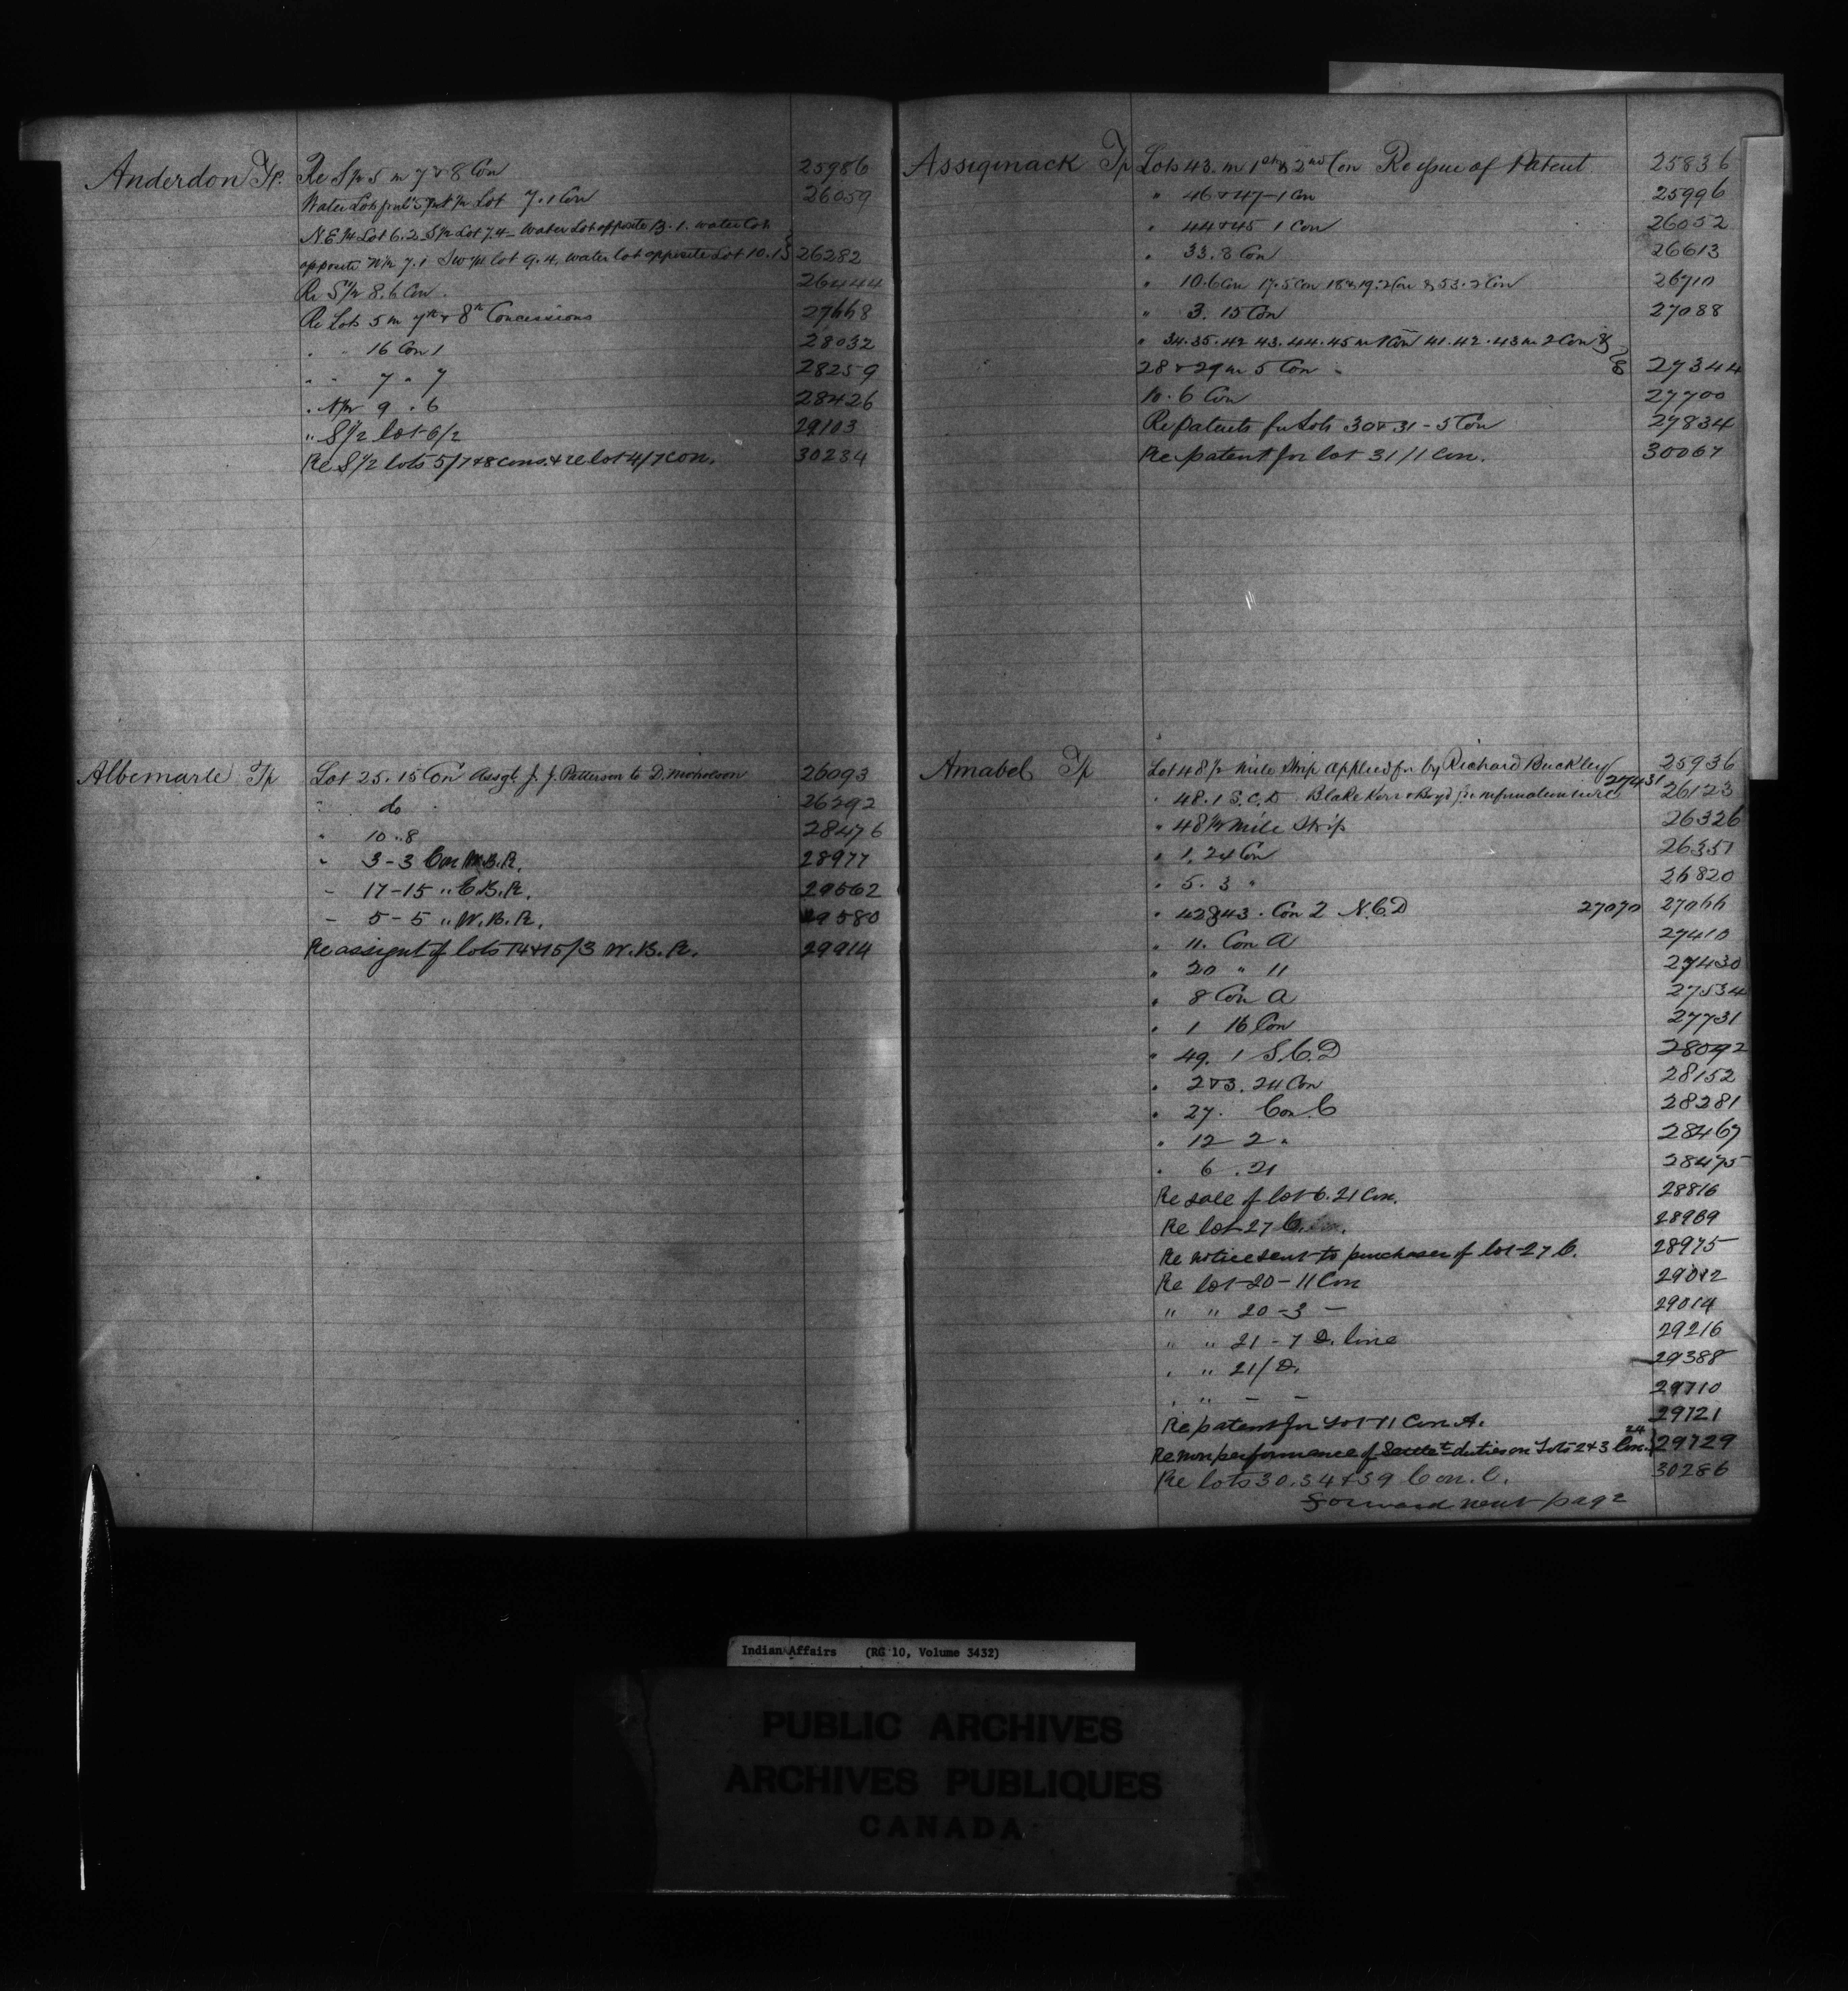 Anderdon Tp. Re S½ 5 in 7 & 8 Con 25986
Water Lots in Lot 7.1 Con 26059
N.E.¼ Lot 6.2 S½ Lot 7.4 - Water Lot opposite B. 1. water Lot
opposite N½ 7.1 SW¼ lot 9.4, water lot opposite Lot 10.1 26282
Re S½ 8.6 Con 26444
Re Lots 5 in 7th & 8th Concessions 27668
" " 16 Con 1 28032
" " 7 " 7 28259
" N½ 9 . 6 28426
" S1/2 lot-6/2 29103
Re S1/2 lots 5/7&8 cons. & re lot 4/7 con. 30234
Albemarle Tp Lot 25. 15 Con Assgt. J. J. Patterson to D. Nicholson 26093
" do 26292
" 10..8 28476
" 3-3 Con W.B.R. 28977
- 17-15 " E.B.R. 29562
- 5-5 " W.B.R. 29580
Re assignt of lots 14&15/3 W.B.R. 29914
Assiginack Tp Lots 43. in 1st & 2nd Con Re issue of Patent 25836
" 46 & 47-1 Con 25996
" 44 & 45 1 Con 26052
" 33.8 Con 26613
" 10.6 Con 17.5 Con 18 & 19.2 Con & 53.2 Con 26710
" 3. 15 Con 27088
" 34.35.42 43.44.45 in 1 Con 41.42.43 in 2 Con &
28 & 29 in 5 Con 27344
10.6 Con 27700
Re patents for Lots 30 & 31-5 Con 27834
Re patent for lot 31/1 Con. 30067
Amabel Tp Lot 48 ½ Mile Strip Applied for by Richard Buckley 25936
" 48.1 S.C.D Blake Kerr & Boyd for information 27431 26123
" 48 ½ Mile Strip 26326
" 1, 24 Con 26351
" 5. 3 " 26820
" 42 & 43. Con 2 N.C.D 27070 27066
" 11. Con A 27410
" 20 " 11 27430
" 8 Con A 27534
" 1 16 Con 27731
" 49. 1 S.C.D 28092
" 2 & 3. 24 Con 28152
" 27. Con. C 28281
" 12 2 " 28467
" 6 . 21 28475
Re sale of lot 6. 21 Con. 28816
Re lot 27 C. 28969
Re notice sent to purchaser of lot 27 C. 28975
Re lot-20-11 Con 29012
" " 20-3 - 29014
" " 21-7 D. line 29216
" " 21/D. 29388
" " - - 29710
Re patent for Lot 11 Con A. 29721
Re non performance of Settlet duties on Lots 2&3 24 Con. 29729
Re lots 30.34 & 39 Con. C. 30286
Forward next page
Indian Affairs (RG 10, Volume 3432)
PUBLIC ARCHIVES
ARCHIVES PUBLIQUES
CANADA